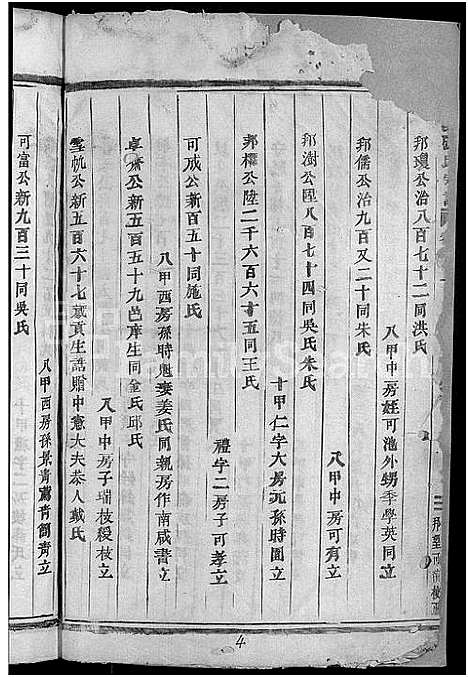 邦瓊公治八百七十二同洪氏
八甲中房姪可池外甥季學英同立
邦儒公治九百又二十同朱氏
八甲中房可有立
邦澍公陞八百七十四同吳氏朱氏
十甲仁字大房元孫時圓立
邦權公陸二千六百六十五同王氏
禮字二房子可孝立
可成公新百五十同施氏
八甲西房孫時魁妻姜氏同親房作南咸書立
卓齋公新五百五十九邑庠生同金氏邱氏
八甲中房子瑞枝綬枝立
雪帆公新五百六十七歲貢生誥贈中憲大夫恭人戴氏
八甲西房孫景青薦青簡青立
可富公新九百三十同吳氏
4